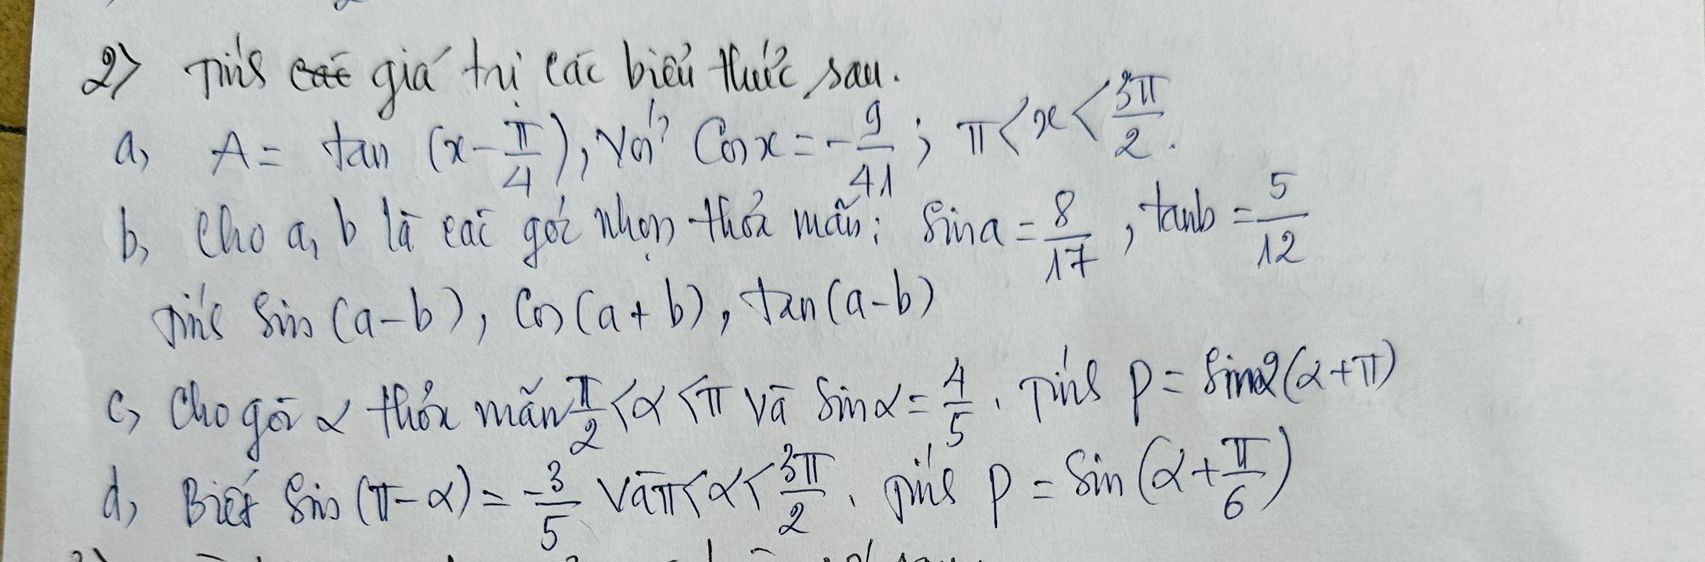 2) Tính các giá trị các biểu thức sau.
a, A = tan (x - π/4), với cos x = - 9/41 ; π < x < 3π/2.
b, Cho a, b là các góc nhọn thỏa mãn: sin a = 8/17, tan b = 5/12
Tính sin (a - b), cos (a + b), tan (a - b)
c, Cho góc α thỏa mãn π/2 < α < π và sin α = 4/5. Tính P = sin 2(α + π)
d, Biết sin (π - α) = -3/5 và π < α < 3π/2. Tính P = sin (α + π/6)